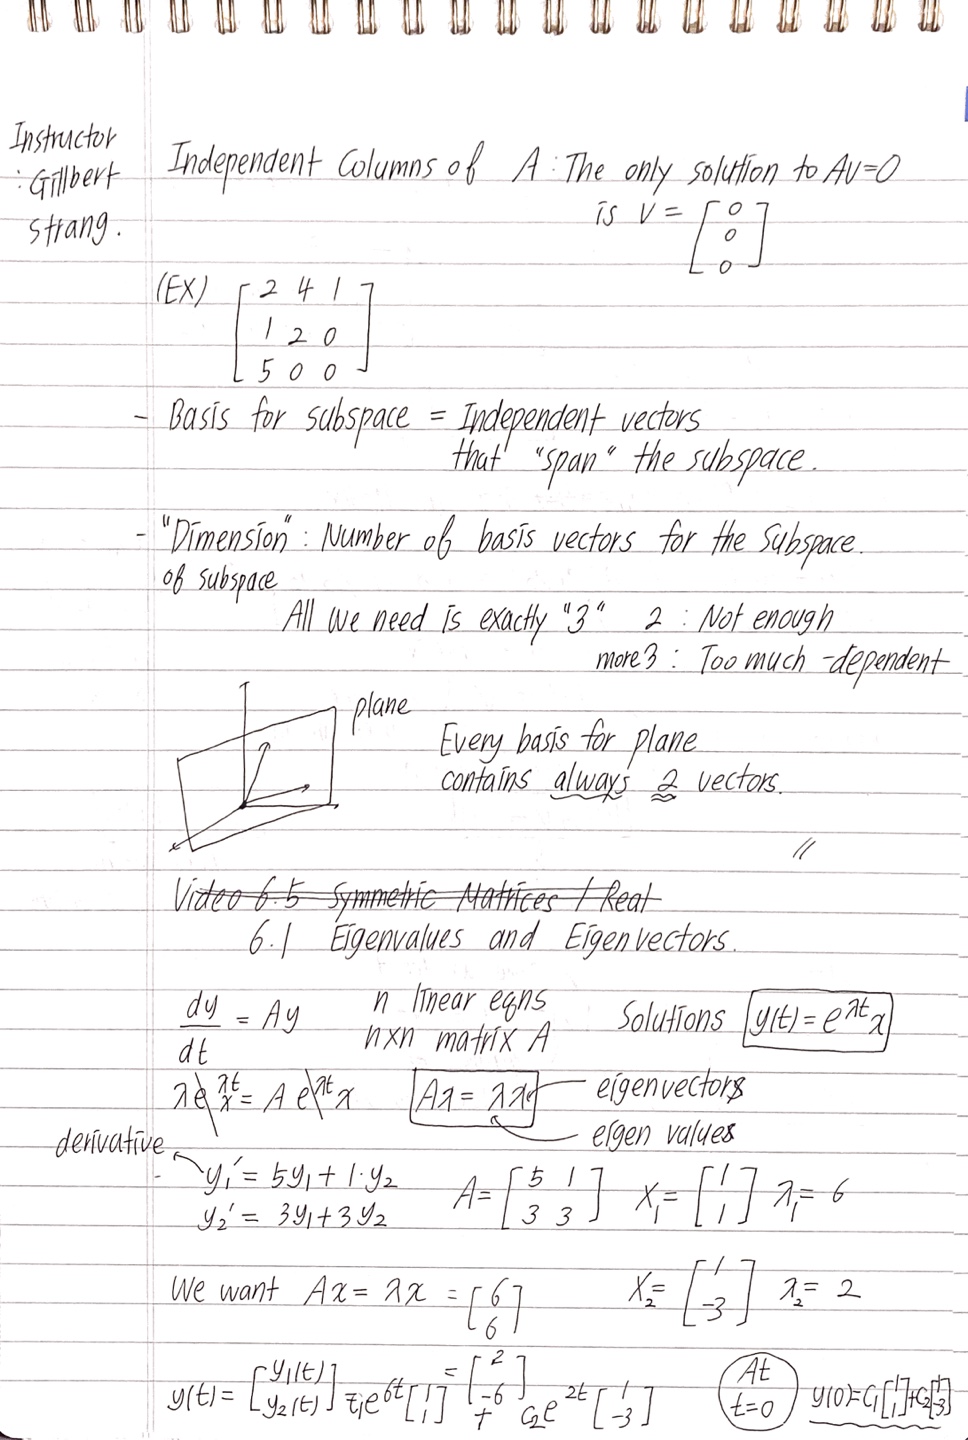 Instructor
: Gillbert
strang.
Independent Columns of A : The only solution to AV=0
is V = [0
0
0]
(EX) [2 4 1
1 2 0
5 0 0]
- Basis for subspace = Independent vectors
that "span" the subspace.
- "Dimension" : Number of basis vectors for the Subspace.
of subspace
All we need is exactly "3" 2 : Not enough
more3 : Too much -dependent
plane
Every basis for plane
contains always 2 vectors.
//
Video 6.5 Symmetric Matrices / Real
6.1 Eigenvalues and Eigenvectors.
dy/dt = Ay n linear eqns Solutions y(t) = e^λt x
n×n matrix A
λe^λt x = A e^λt x Ax = λx eigenvectors
eigen values
derivative
y₁' = 5y₁ + 1·y₂ A = [5 1 X₁ = [1 λ₁ = 6
y₂' = 3y₁ + 3y₂ 3 3] 1]
We want Ax = λx = [6 X₂ = [1 λ₂ = 2
6] -3]
= [2
-6]
y(t) = [y₁(t) = c₁e^6t [1 + c₂e^2t [1
y₂(t)] 1] -3]
At
t=0
y(0)=C₁[1 1]+C₂[1 -3]